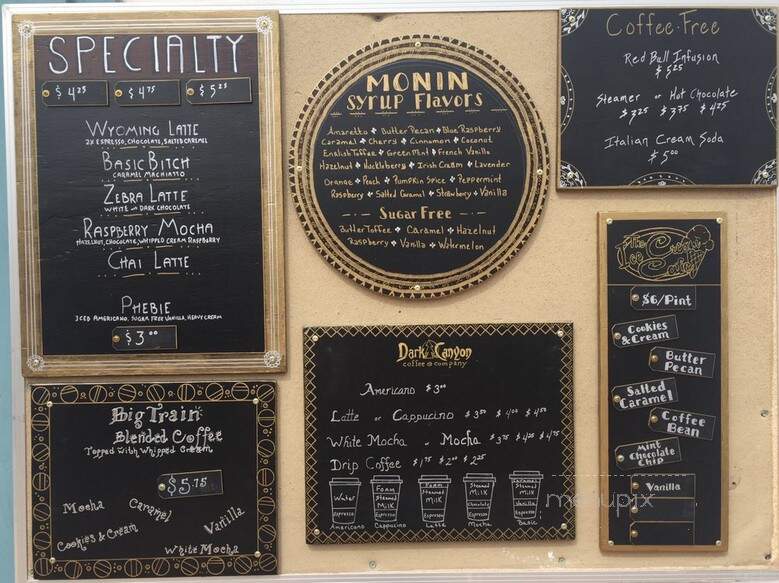 SPECIALTY
$4.25 $4.75 $5.25
WYOMING LATTE
2X ESPRESSO, CHOCOLATE, SALTED CARAMEL
BASIC BITCH
CARAMEL MACHIATTO
ZEBRA LATTE
WHITE DARK CHOCOLATE
RASPBERRY MOCHA
HAZELNUT, CHOCOLATE, WHIPPED CREAM RASPBERRY
CHAI LATTE
PHEBIE
ICED AMERICANO, SUGAR FREE VANILLA, HEAVY CREAM
$3.00
MONIN
Syrup Flavors
Amaretto Butter Pecan Blue Raspberry
Caramel Cherry Cinnamon Coconut
English Toffee Green Mint French Vanilla
Hazelnut Huckleberry Irish Cream Lavender
Orange Peach Pumpkin Spice Peppermint
Raspberry Salted Caramel Strawberry Vanilla
Sugar Free
Butter Toffee Caramel Hazelnut
Raspberry Vanilla Watermelon
Coffee-Free
Red Bull Infusion
$5.25
Steamer or Hot Chocolate
$3.25 $3.75 $4.25
Italian Cream Soda
$5.00
The
Ice Cream
Cafe
$6/Pint
Cookies
& Cream
Butter
Pecan
Salted
Caramel
Coffee
Bean
Mint
Chocolate
Chip
Vanilla
Big Train
Blended Coffee
Topped with Whipped Cream
$5.75
Mocha
Caramel
Vanilla
Cookies & Cream
White Mocha
Dark Canyon
coffee company
Americano $3.00
Latte or Cappucino $3.50 $4.00 $4.50
White Mocha or Mocha $3.75 $4.25 $4.75
Drip Coffee $1.75 $2.00 $2.25
Water
Espresso
Americano
Foam
Steamed
Milk
Espresso
Cappucino
Foam
Steamed
Milk
Espresso
Latte
Steamed
Milk
Chocolate
Espresso
Mocha
Caramel
Steamed
Milk
Vanilla
Espresso
Basic
menupix